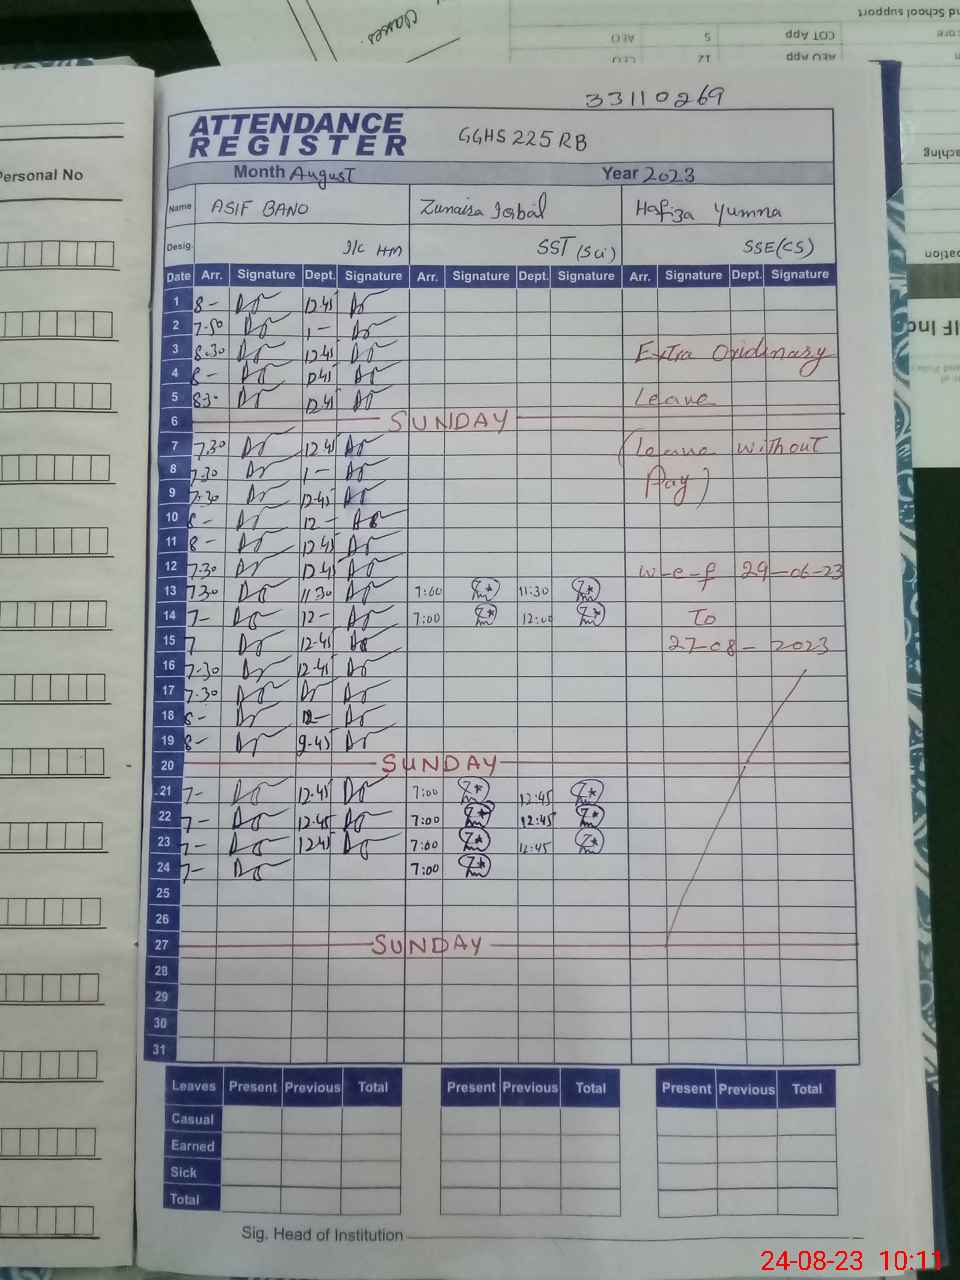 Classes.
COT App 5 AEO
AEO App 12 CEO
33110269
ATTENDANCE
REGISTER
GGHS 225 RB
Personal No
Month August Year 2023
Name ASIF BANO Zunaira Iqbal Hafiza Yumna
Desig. I/C HM SST (Sci) SSE(CS)
Date Arr. Signature Dept. Signature Arr. Signature Dept. Signature Arr. Signature Dept. Signature
1 8- 12.45
2 7.50 1-
3 8.30 12.45 Extra Oridinary
4 8- 12.45
5 8.30 12.45 Leave
6 SUNDAY
7 7.30 12.45 (Leave without
8 7.30 1-
9 7.30 12.45 Pay)
10 8- 12-
11 8- 12.45
12 7.30 12.45 w-e-f 29-06-23
13 7.30 11.30 7:00 11:30
14 7- 12- 7:00 12:00 To
15 7 12.45 27-08-2023
16 7.30 12.45
17 7.30
18 8- 12-
19 8- 9.45
20 SUNDAY
21 7- 12.45 7:00 12:45
22 7- 12.45 7:00 12:45
23 7- 12.45 7:00 12:45
24 7- 7:00
25
26
27 SUNDAY
28
29
30
31
Leaves Present Previous Total Present Previous Total Present Previous Total
Casual
Earned
Sick
Total
Sig. Head of Institution
24-08-23 10:11